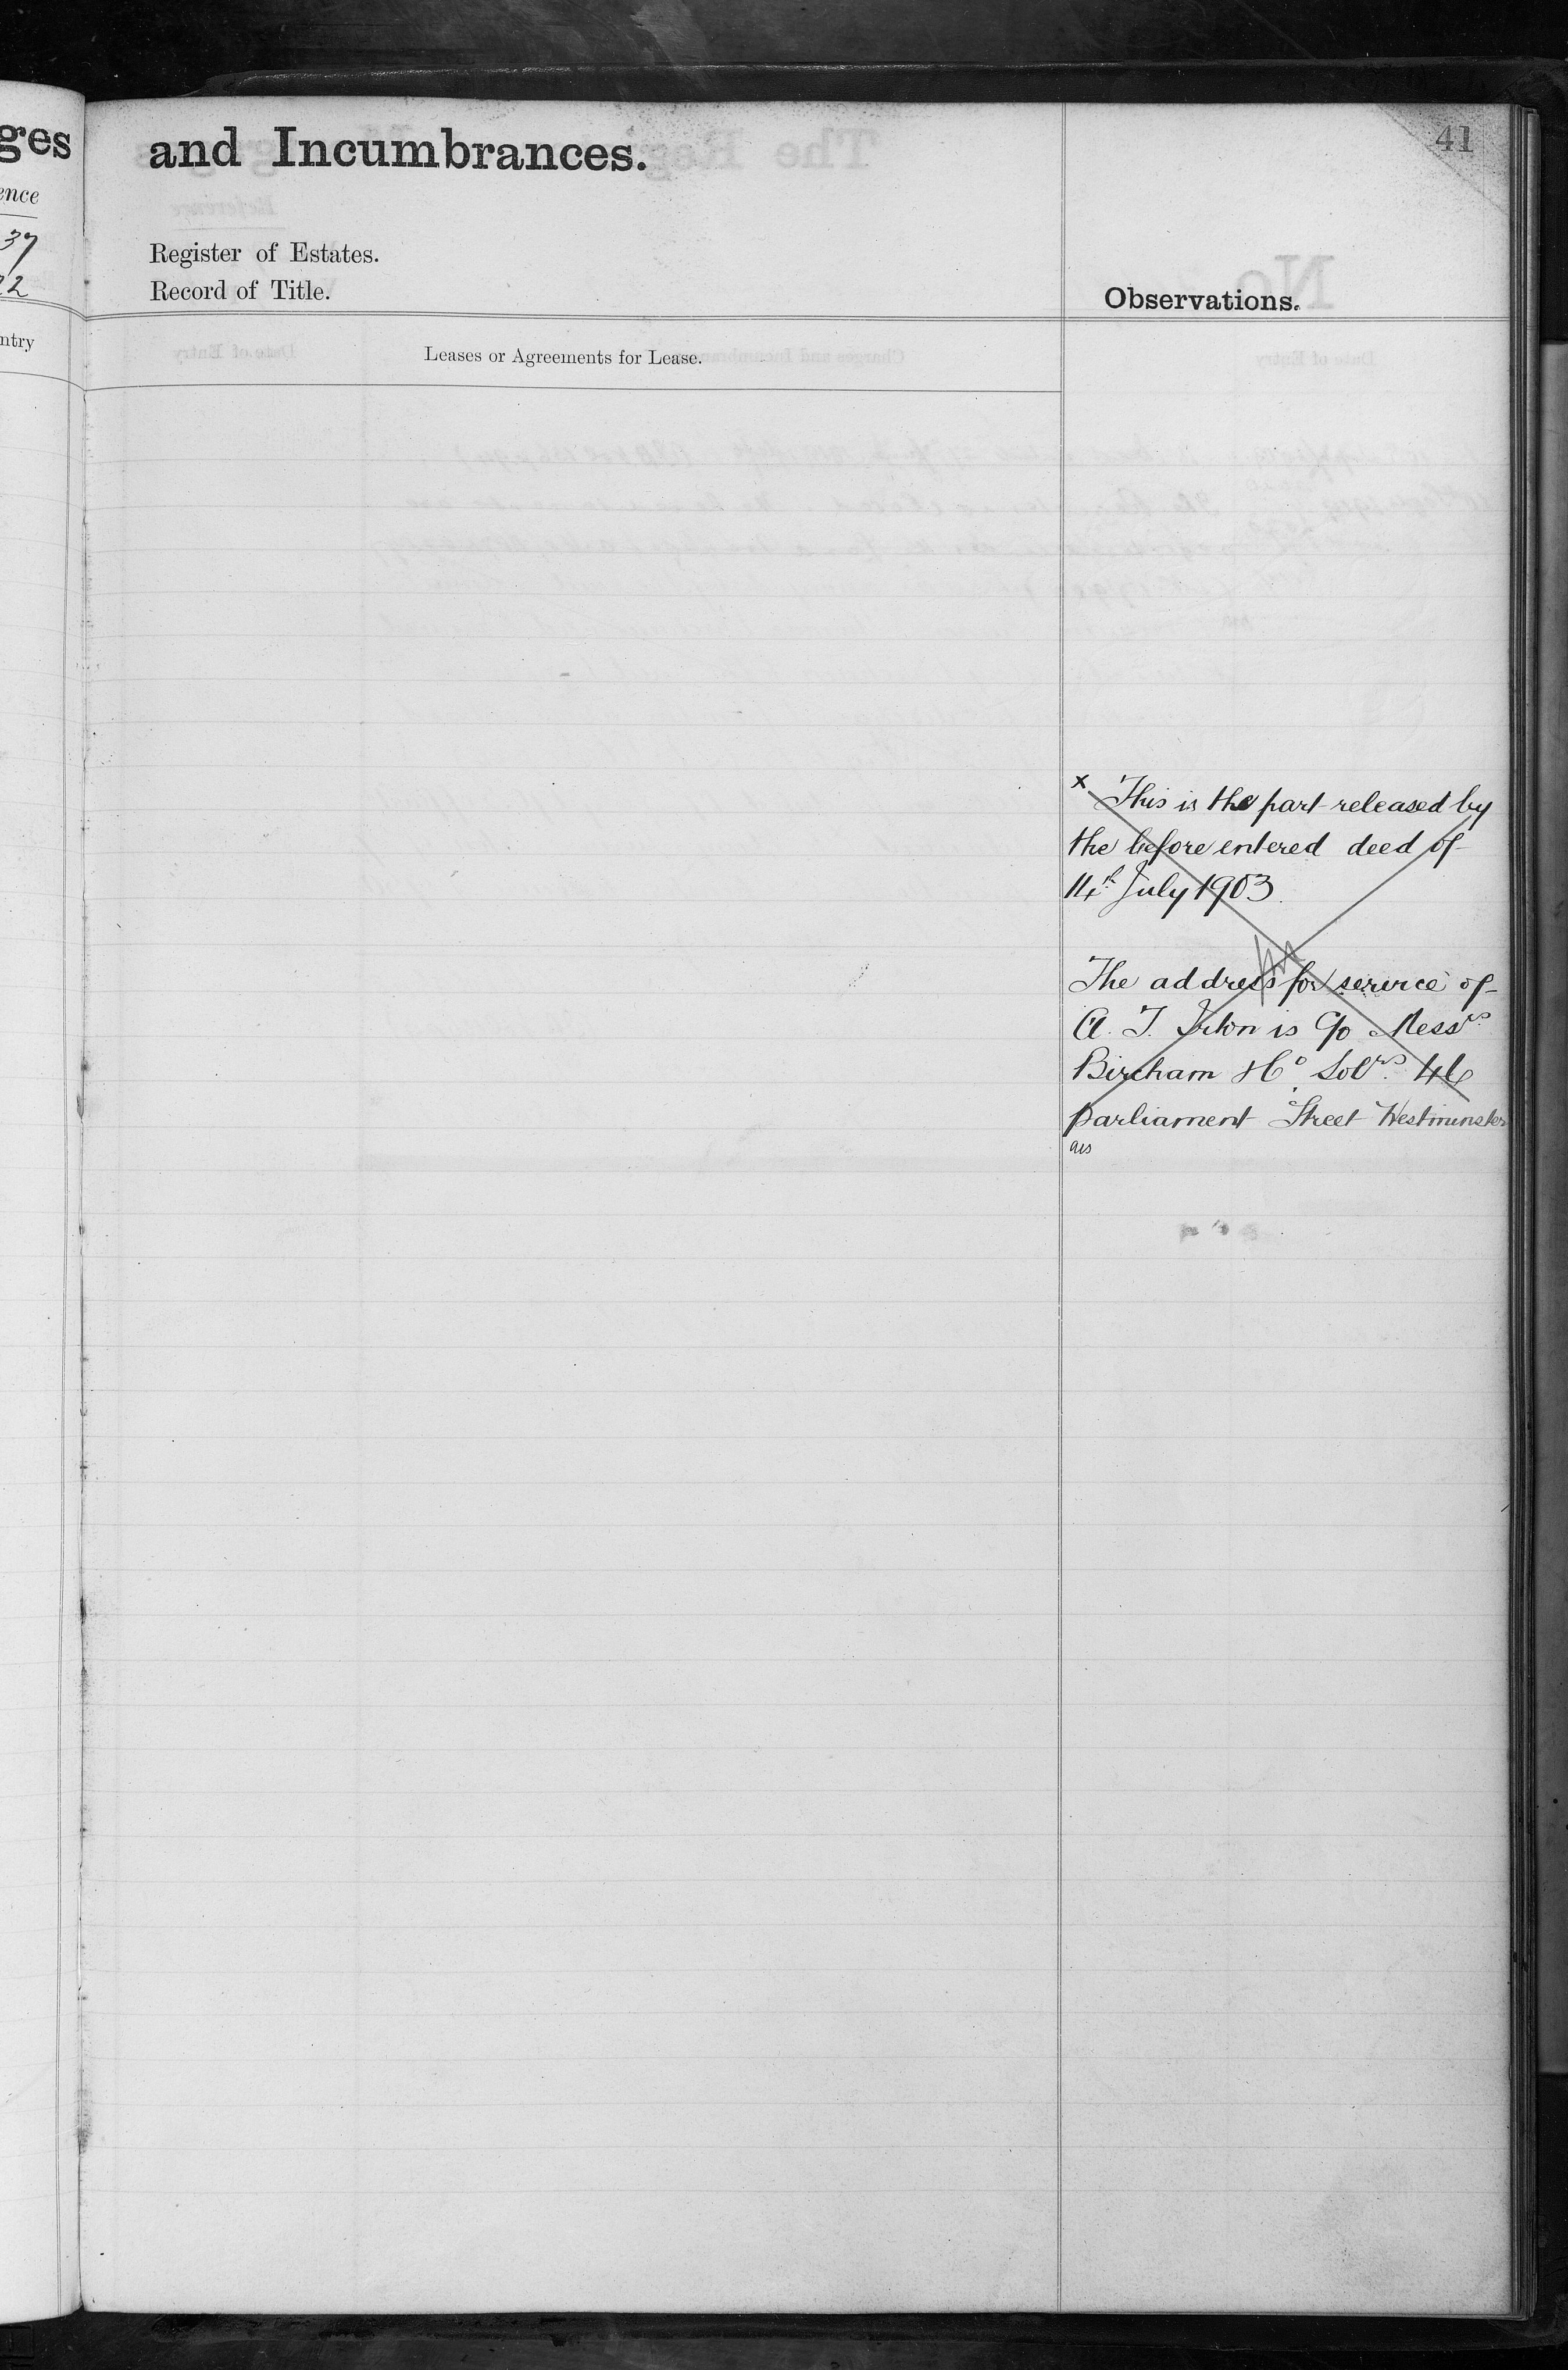 ges
ence
37
22
ntry
and Incumbrances.
41
Register of Estates.
Record of Title.
Observations.
Leases or Agreements for Lease.
x This is the part released by
the before entered deed of
14th July 1903.
The address for service of
A. T. Irton is C/o Messrs
Bircham & Co Solrs. 46
Parliament Street Westminster